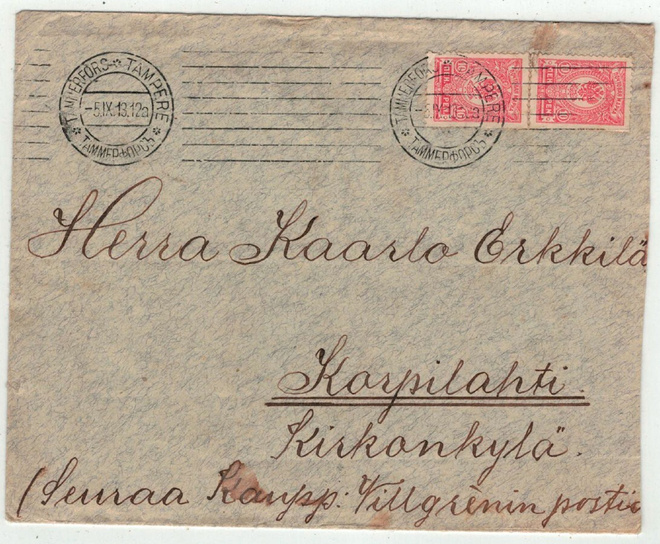 TAMMERFORS ✲ TAMPERE
-5.IX.13.12a
ТАММЕРФОРСЪ
TAMMERFORS ✲ TAMPERE
ТАММЕРФОРСЪ
Herra Kaarlo Erkkilä
Korpilahti.
Kirkonkylä.
(Seuraa Kaupp: Villgrénin postia